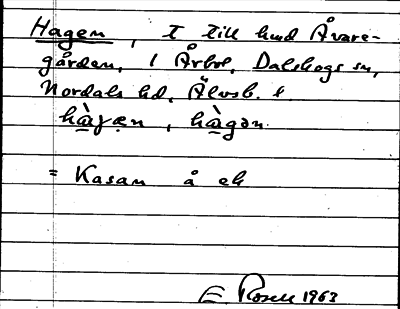 Hagen, t till hmd Åvare-
gården, 1 Årbol, Dalskogs sn,
Nordals hd, Älvsb. l
hàgæn, hàgən
= Kasam å ek
E. Rosell 1963